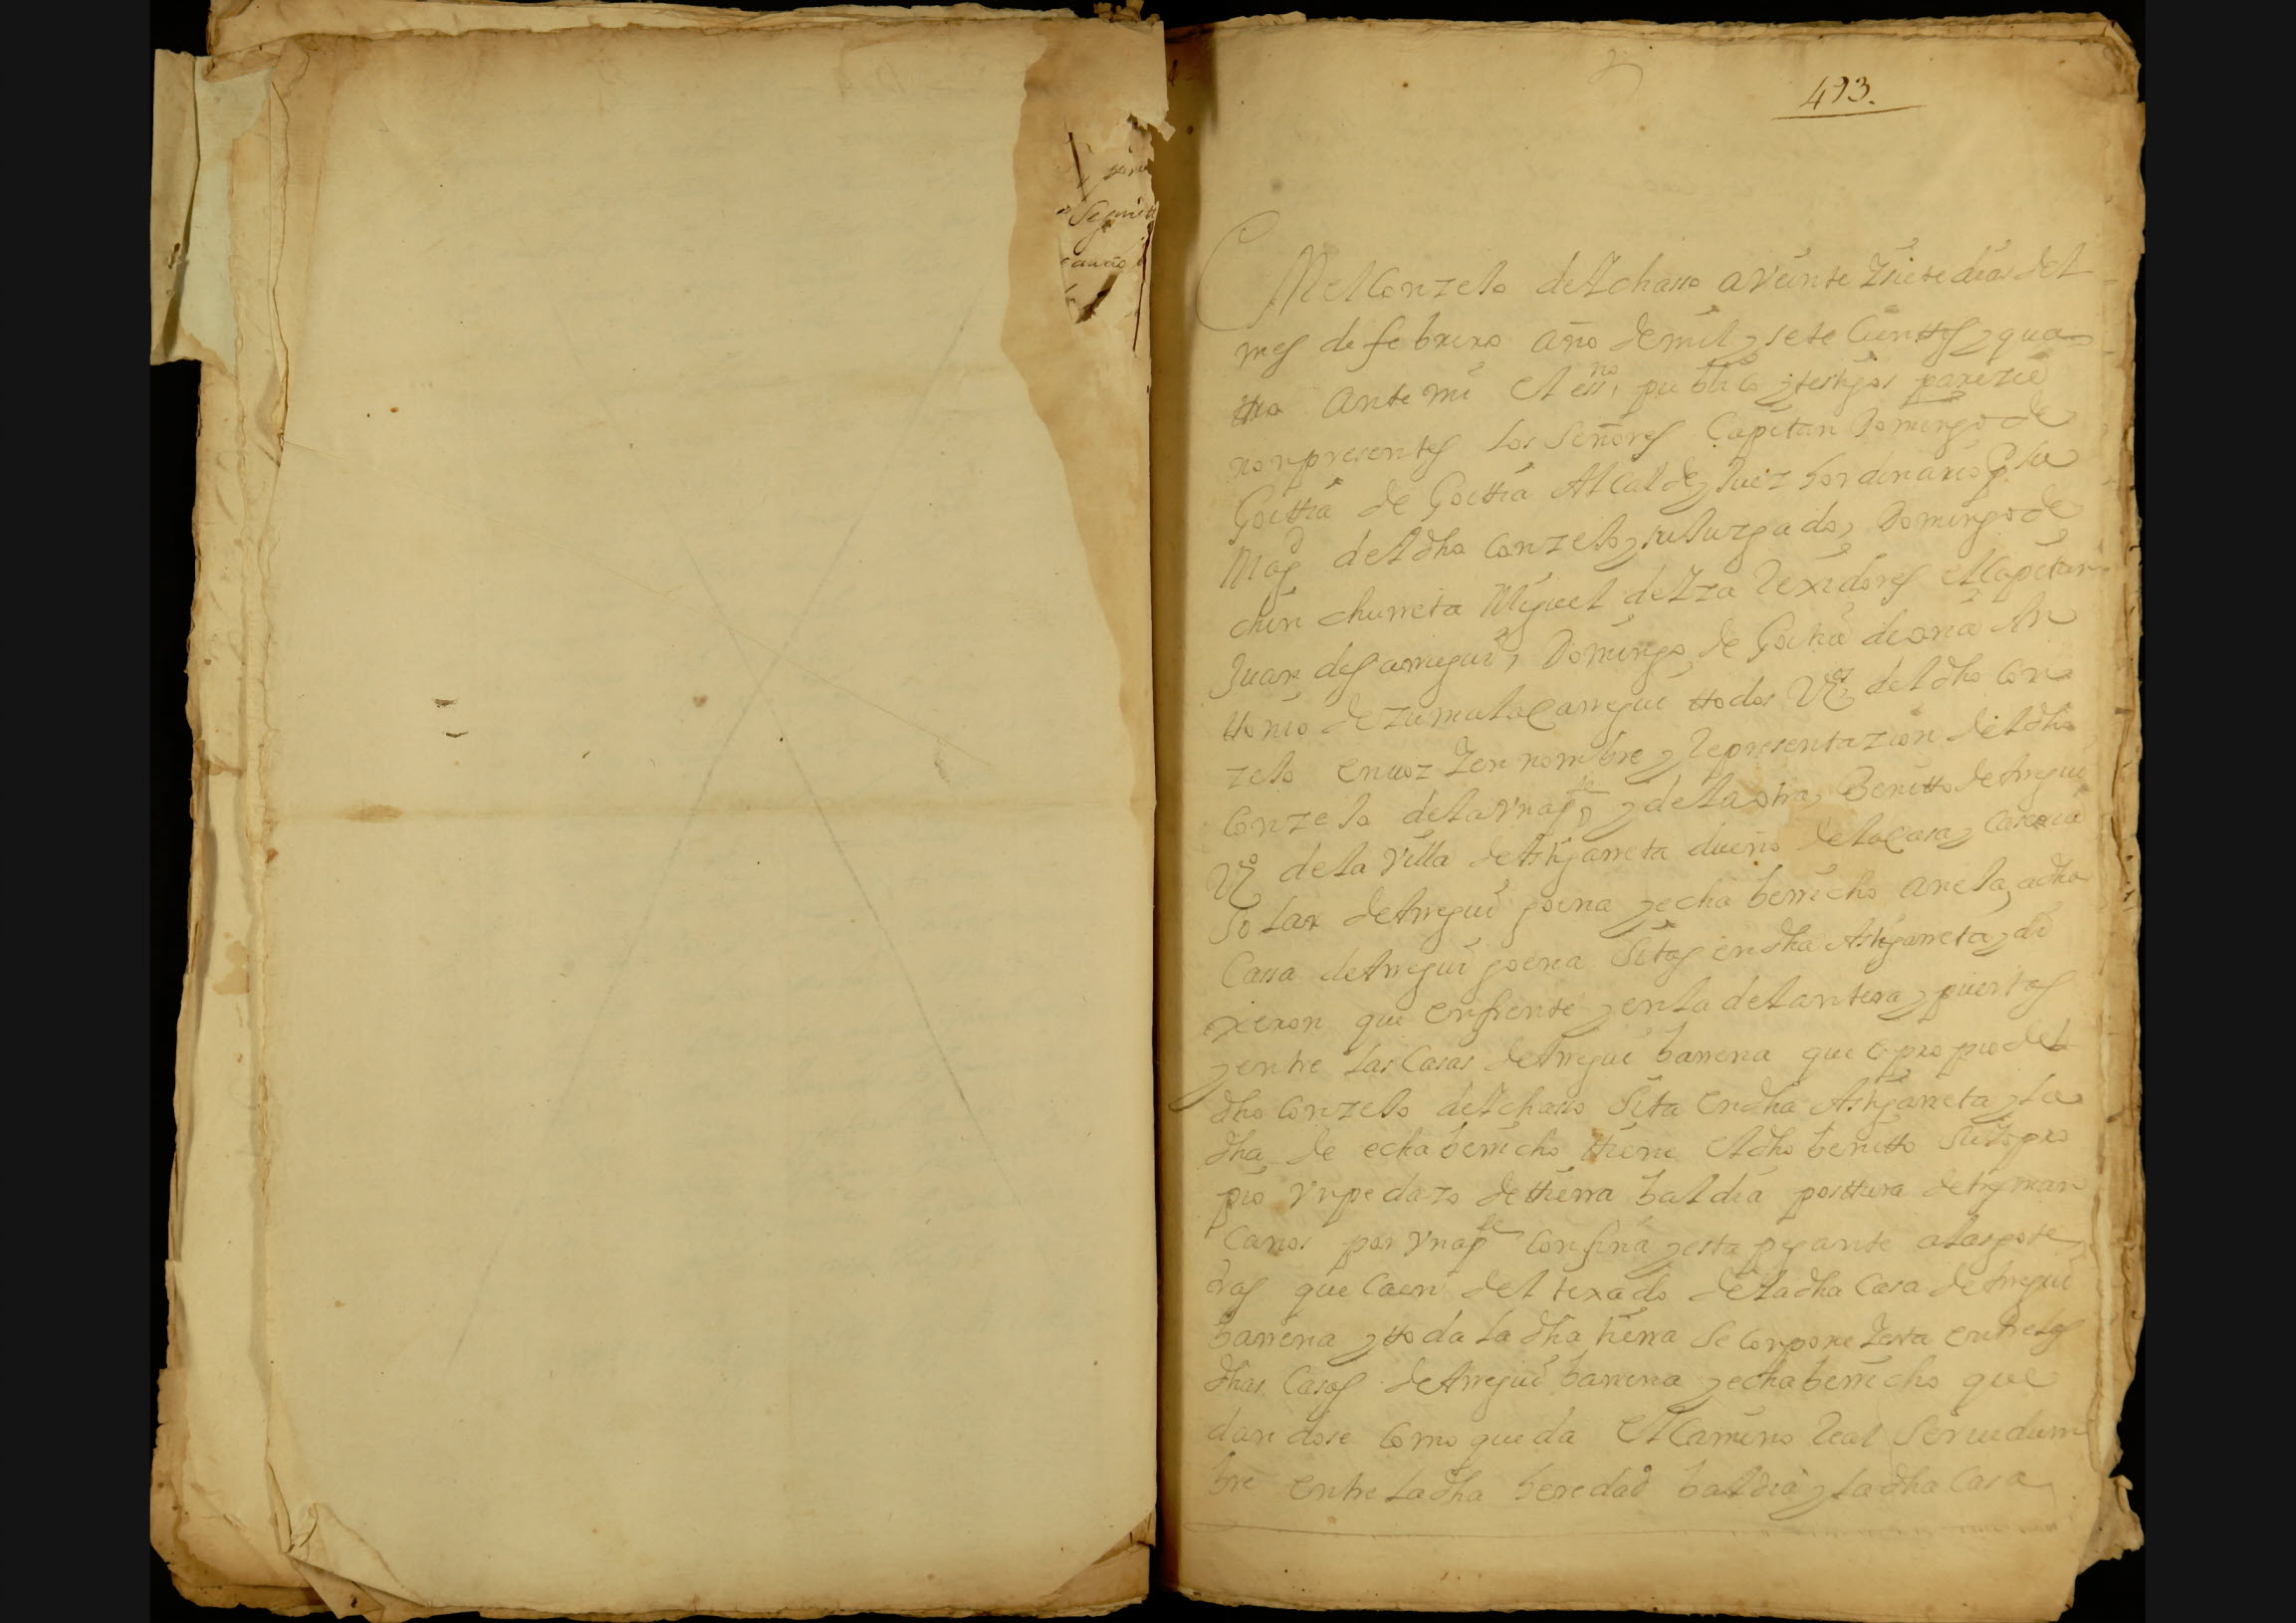 493.
En el Conzelo de Ychasso a veinte y siete dias del
mes de febrero año de mil y sete cienttos y qua
ttro ante mi el ess.no publico y testigos parezie
ron presentes los Señores Capitan Domingo de
Goittia de Goittia Alcalde y Juez hordinario p. su
Mag.d del dho Conzelo y su Juzgado, Domingo de
chinchurreta Miguel de Yza Rexidores el Capitan
Juan de Sarregui, Domingo de Goitia de oria An
ttonio de zumalaCarregui ttodos Vz.os del dho Con
zelo en voz Y en nombre y Representazion del dho
Conzelo de la Vna p.te y de la otra Benitto de Arregui
Vz.o de la Villa de Astigarreta dueño de la Casa y Caseria
Solar de Arregui goena y echa berricho anela a dha
Cassa de Arregui goena Sitas en dha Astigarreta, di
xeron que enfrente y en la delantera y puertas
y entre las Casas de Arregui barrena que es propio del
dho Conzelo de Ychasso Sita en dha Astigarreta y la
dha de echaberricho ttiene el dho benitto Suio pro
pio Vn pedazo de ttierra baldia posttura de tres man
canos por Vna p.te Confina y esta pegante a las gote
ras que Caen del texado de la dha Casa de Arregui
barrena y ttoda la dha tierra Se Conpone Y esta entre las
dhas Casas de Arregui barrena y echaberricho que
dandose Como queda el Camino Real Seruidum
bre entre la dha heredad baldia y la dha Casa